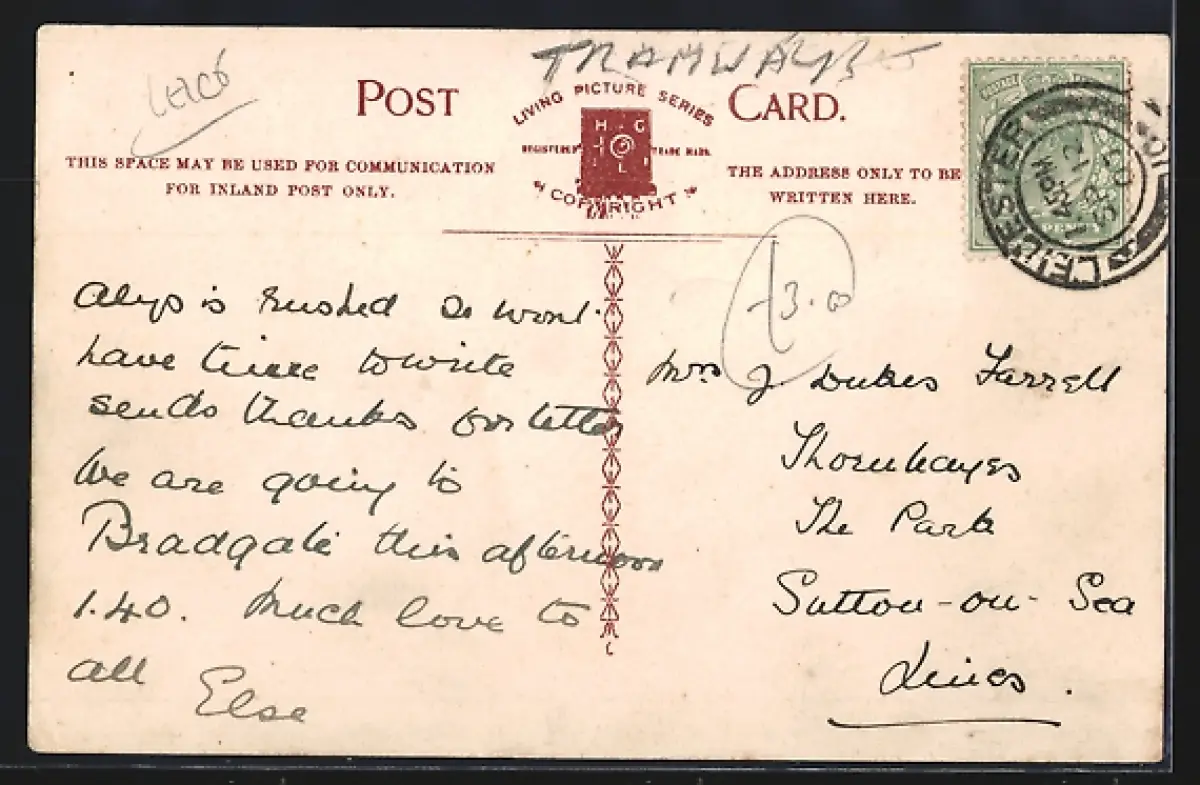 TRAMWAYS
Leics
POST CARD.
LIVING PICTURE SERIES
H G
L
REGISTERED TRADE MARK.
COPYRIGHT
THIS SPACE MAY BE USED FOR COMMUNICATION
FOR INLAND POST ONLY.
THE ADDRESS ONLY TO BE
WRITTEN HERE.
LEICESTER
45 PM
SP 12
07
Alys is rushed so wont
have time to write
sends thanks for letter
We are going to
Bradgate this afternoon
1.40. Much love to
all Else
3.00
Mrs J Dukes Farrell
Thornhayes
The Park
Sutton-on-Sea
Lincs.